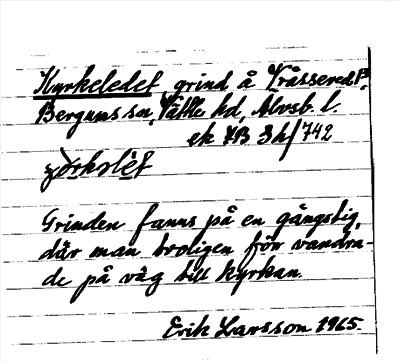 Kyrkeledet, grind å Tråssered B,
Bergums sn, Vättle hd, Älvsb. l.
ek 7B 3h/742
Grinden fanns på en gångstig,
där man troligen förr vandra-
de på väg till kyrkan.
Erik Larsson 1965.